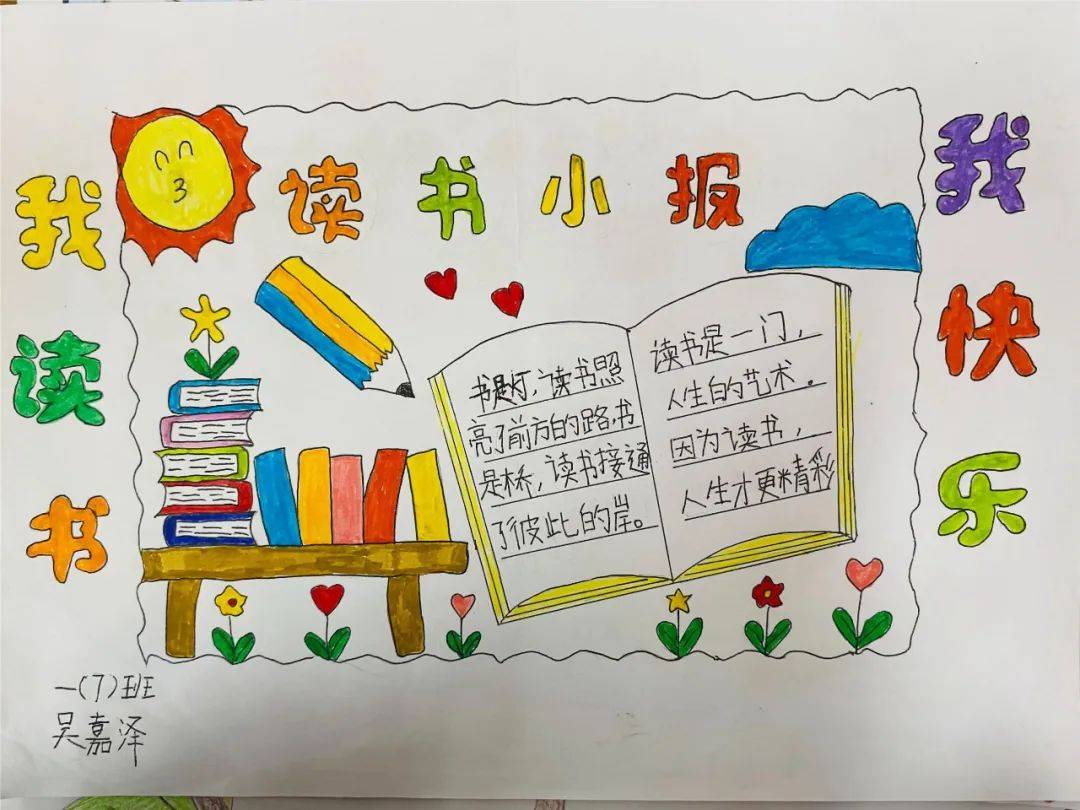 读书小报
我读书
我快乐
书是灯，读书照
亮了前方的路，书
是桥，读书接通
了彼此的岸。
读书是一门，
人生的艺术．
因为读书，
人生才更精彩
一(7)班
吴嘉泽